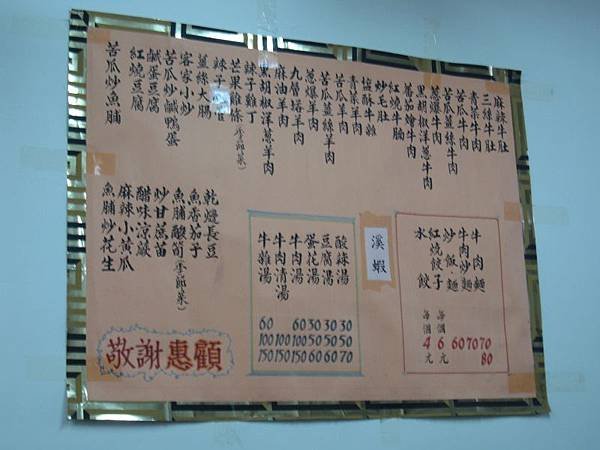 麻辣牛肚
三絲牛肚
青菜牛肉
苦瓜牛肉
苦瓜薑絲牛肉
蔥爆牛肉
黑胡椒洋蔥牛肉
蕃茄燴牛肉
紅燒牛腩
炒毛肚
塩酥牛雜
青菜羊肉
苦瓜羊肉
苦瓜薑絲羊肉
蔥爆羊肉
九層塔羊肉
麻油羊肉
黑胡椒洋蔥羊肉
辣子雞丁
芒果雞條(季節菜)
辣子
薑絲大腸
客家小炒
苦瓜炒鹹鴨蛋
鹹蛋豆腐
紅燒豆腐
苦瓜炒魚脯
牛肉麵 70 80
牛肉炒麵 70
炒飯·麵 60
紅燒餃子 每個6元
水餃 每個4元
溪蝦
酸辣湯 30 50 70
豆腐湯 30 50 60
蛋花湯 30 50 60
牛肉湯 60 100 150
牛肉清湯 100 150
牛雜湯 60 100 150
乾煸長豆
魚香茄子
魚脯酸筍(季節菜)
炒甘蔗苗
醋味涼蕨
麻辣小黃瓜
魚脯炒花生
敬謝惠顧